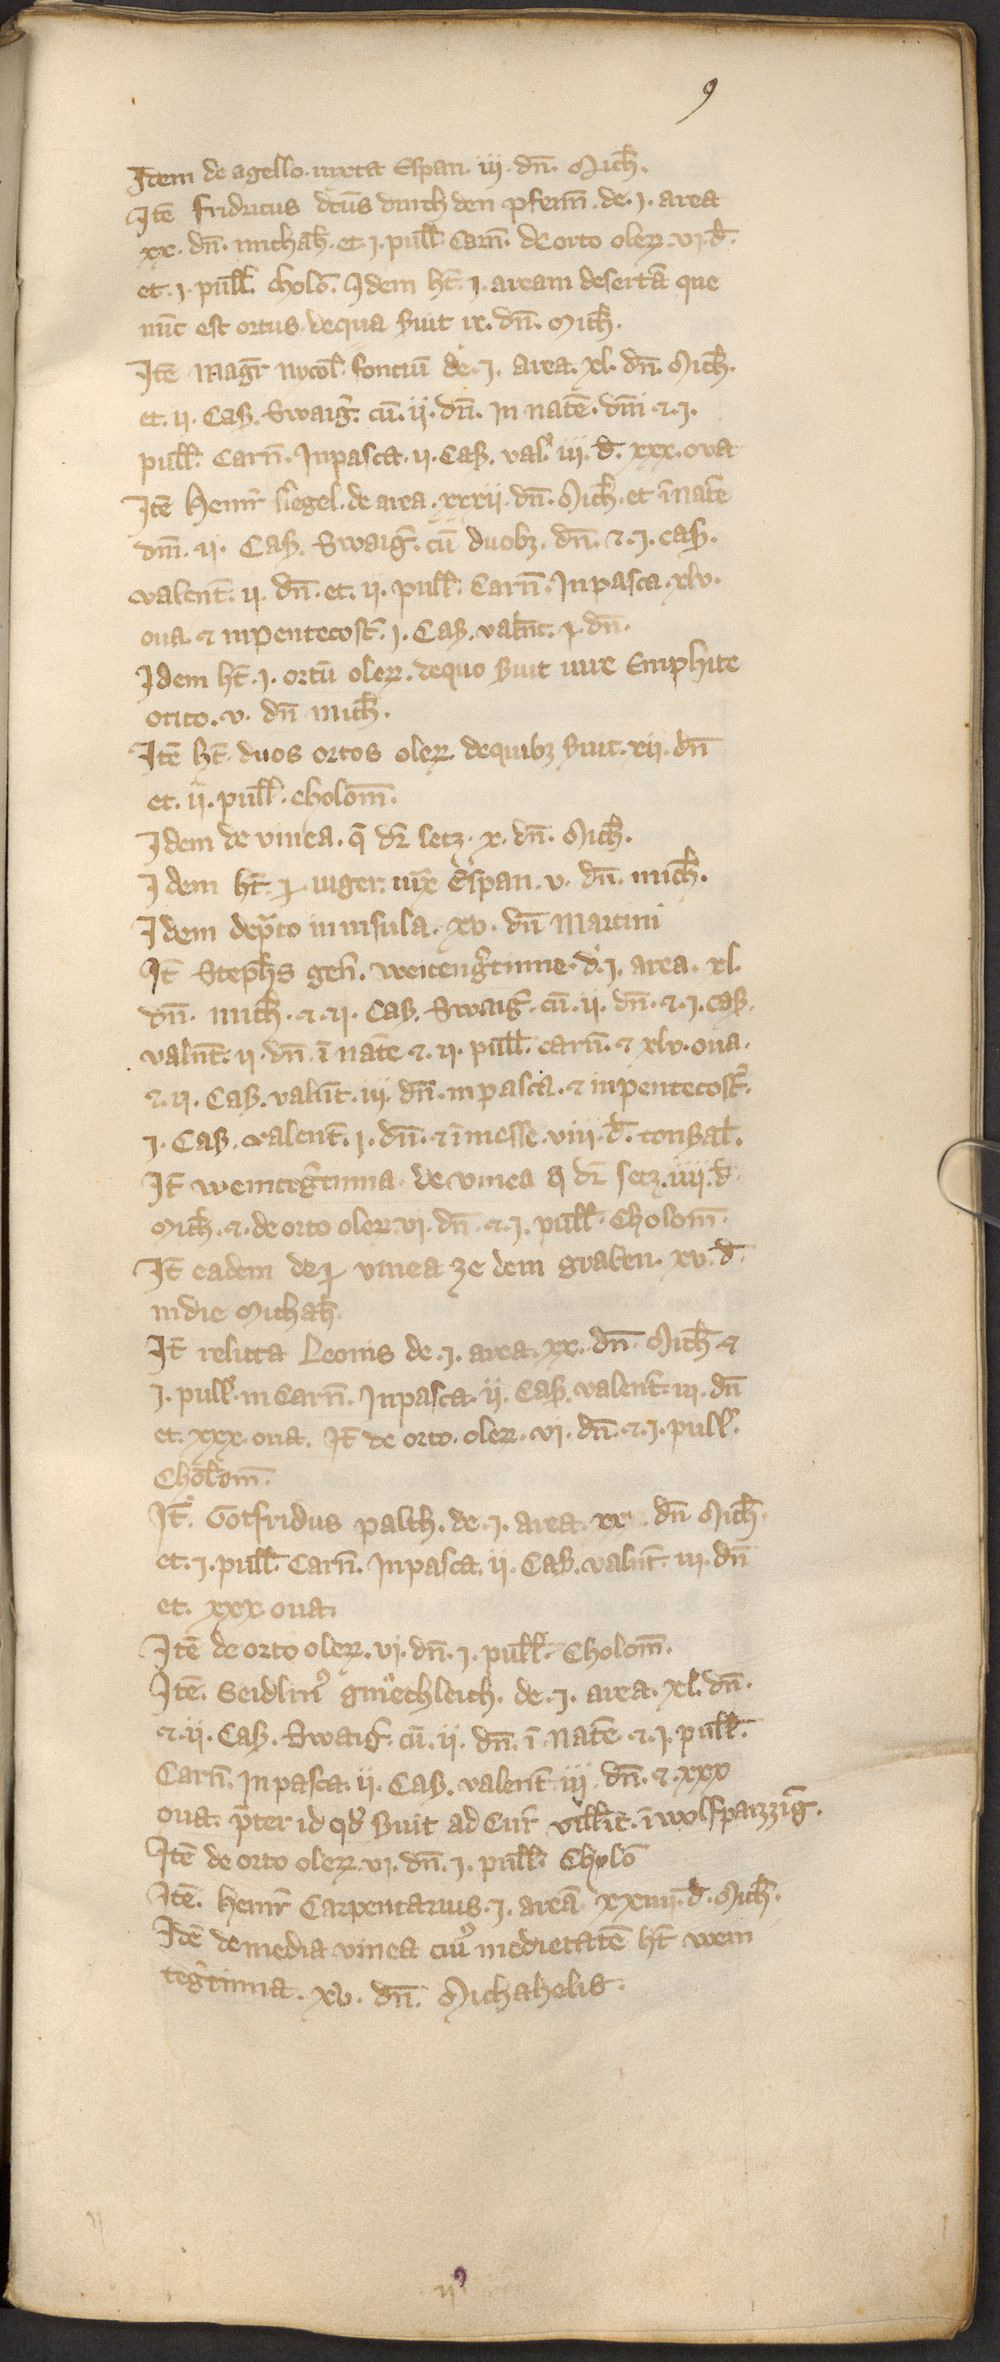 9
Idem de agello iuxta Espan. iij. dn̄. Mich̄.
Itē fridricus dc̄us durch den pfenn̄. de. j. area
xx. dn̄. michah̄. et. j. pull̄. Carn̄. de orto oleꝝ. vj. d̄.
et. j. pull̄. cholō. Idem ht̄. j. aream desertā que
nūc est ortus. de qua ẞuit ix. dn̄. Mich̄.
Itē mag̅r nycol̄. fontiū de. j. area. xl. dn̄. Mich̄.
et. ij. Cas. Swaig̅. cū. ij. dn̄. In natē. dn̄i. et. j.
pull̄. Carn̄. In pasca. ij. Cas. val̄. iij. d̄. xxx. oua
Itē Heinr̄ Siegel. de area. xxxij. dn̄. Mich̄. et ī natē
dn̄i. ij. Cas. Swaig̅. cū duobꝫ. dn̄. et. j. cas.
valent̄. ij. dn̄. et. ij. pull̄. Carn̄. In pasca. xlv.
oua. et in pentecost̄. j. Cas. valn̄t. j. dn̄.
Idem ht̄. j. ortū oleꝝ. de quo ẞuit iure Emphite
otico. v. dn̄ mich̄.
Itē ht̄. duos ortos oleꝝ. de quibꝫ ẞuit. xij. dn̄
et. ij. pull̄. cholom̄.
Idem de vinea. q̄ dr̄ setz. x. dn̄. Mich̄.
Idem ht̄. j. iuger. iux̄ Espan. v. dn̄. mich̄.
Idem de p̄to in insula. xv. dn̄ Martini
It̄ Steph̄s gen̄. weiteng̅tinne. d̄. j. area. xl.
dn̄. mich̄. et. ij. Cas. Swaig̅. cū. ij. dn̄. et. j. cas.
valn̄t. ij. dn̄ ī natē et. ij. pull̄. carn̄. et xlv. oua.
et. ij. Cas. valn̄t. iij. dn̄. in pasca. et in pentecost̄.
j. Cas. valent̄. j. dn̄. et ī messe. viij. d̄. tonẞal̄.
It̄ weinteg̅tinna de vinea q̄ dr̄ setz. iiij. d̄
Mich̄. et. de orto oleꝝ. vj. dn̄. et. j. pull̄. Cholom̄.
It̄ eadem de j vinea ze dem graben. xv. d̄.
in die Michah̄.
It̄ relicta Leonis de. j. area. xx. dn̄. Mich̄ et
j. pull̄. in Carn̄. In pasca. ij. Cas. valent̄. iij. dn̄
et. xxx. oua. It̄ de orto. oleꝝ. vj. dn̄. et. j. pull̄.
Cholom̄.
It̄. Gotfridus palch. de. j. area. xx. dn̄ Mich̄.
et. j. pull̄. Carn̄. In pasca. ij. Cas. valn̄t. iij. dn̄
et. xxx. oua.
Itē de orto oleꝝ. vj. dn̄. j. pull̄. Cholom̄.
Itē. Seidlin̄ gmechleich. de. j. area. xl. dn̄.
et. ij. Cas. Swaig̅. cū. ij. dn̄. ī natē. et. j. pull̄.
Carn̄. In pasca. ij. Cas. valent̄ iij. dn̄. et. xxx
oua. p̄ter id qd̄ ẞuit ad Cur̄ vill̄ic̄. ī wolfparzzing̅.
Itē de orto oleꝝ. vj. dn̄. j. pull̄. Cholō
Itē. heinr̄ Carpentarius. j. areā xxiiij. d̄. Mich̄.
Idē de media vinea cuiꝰ medietatē ht̄ wein
teg̅tinna. xv. dn̄. Michahelis.
ijꝰ